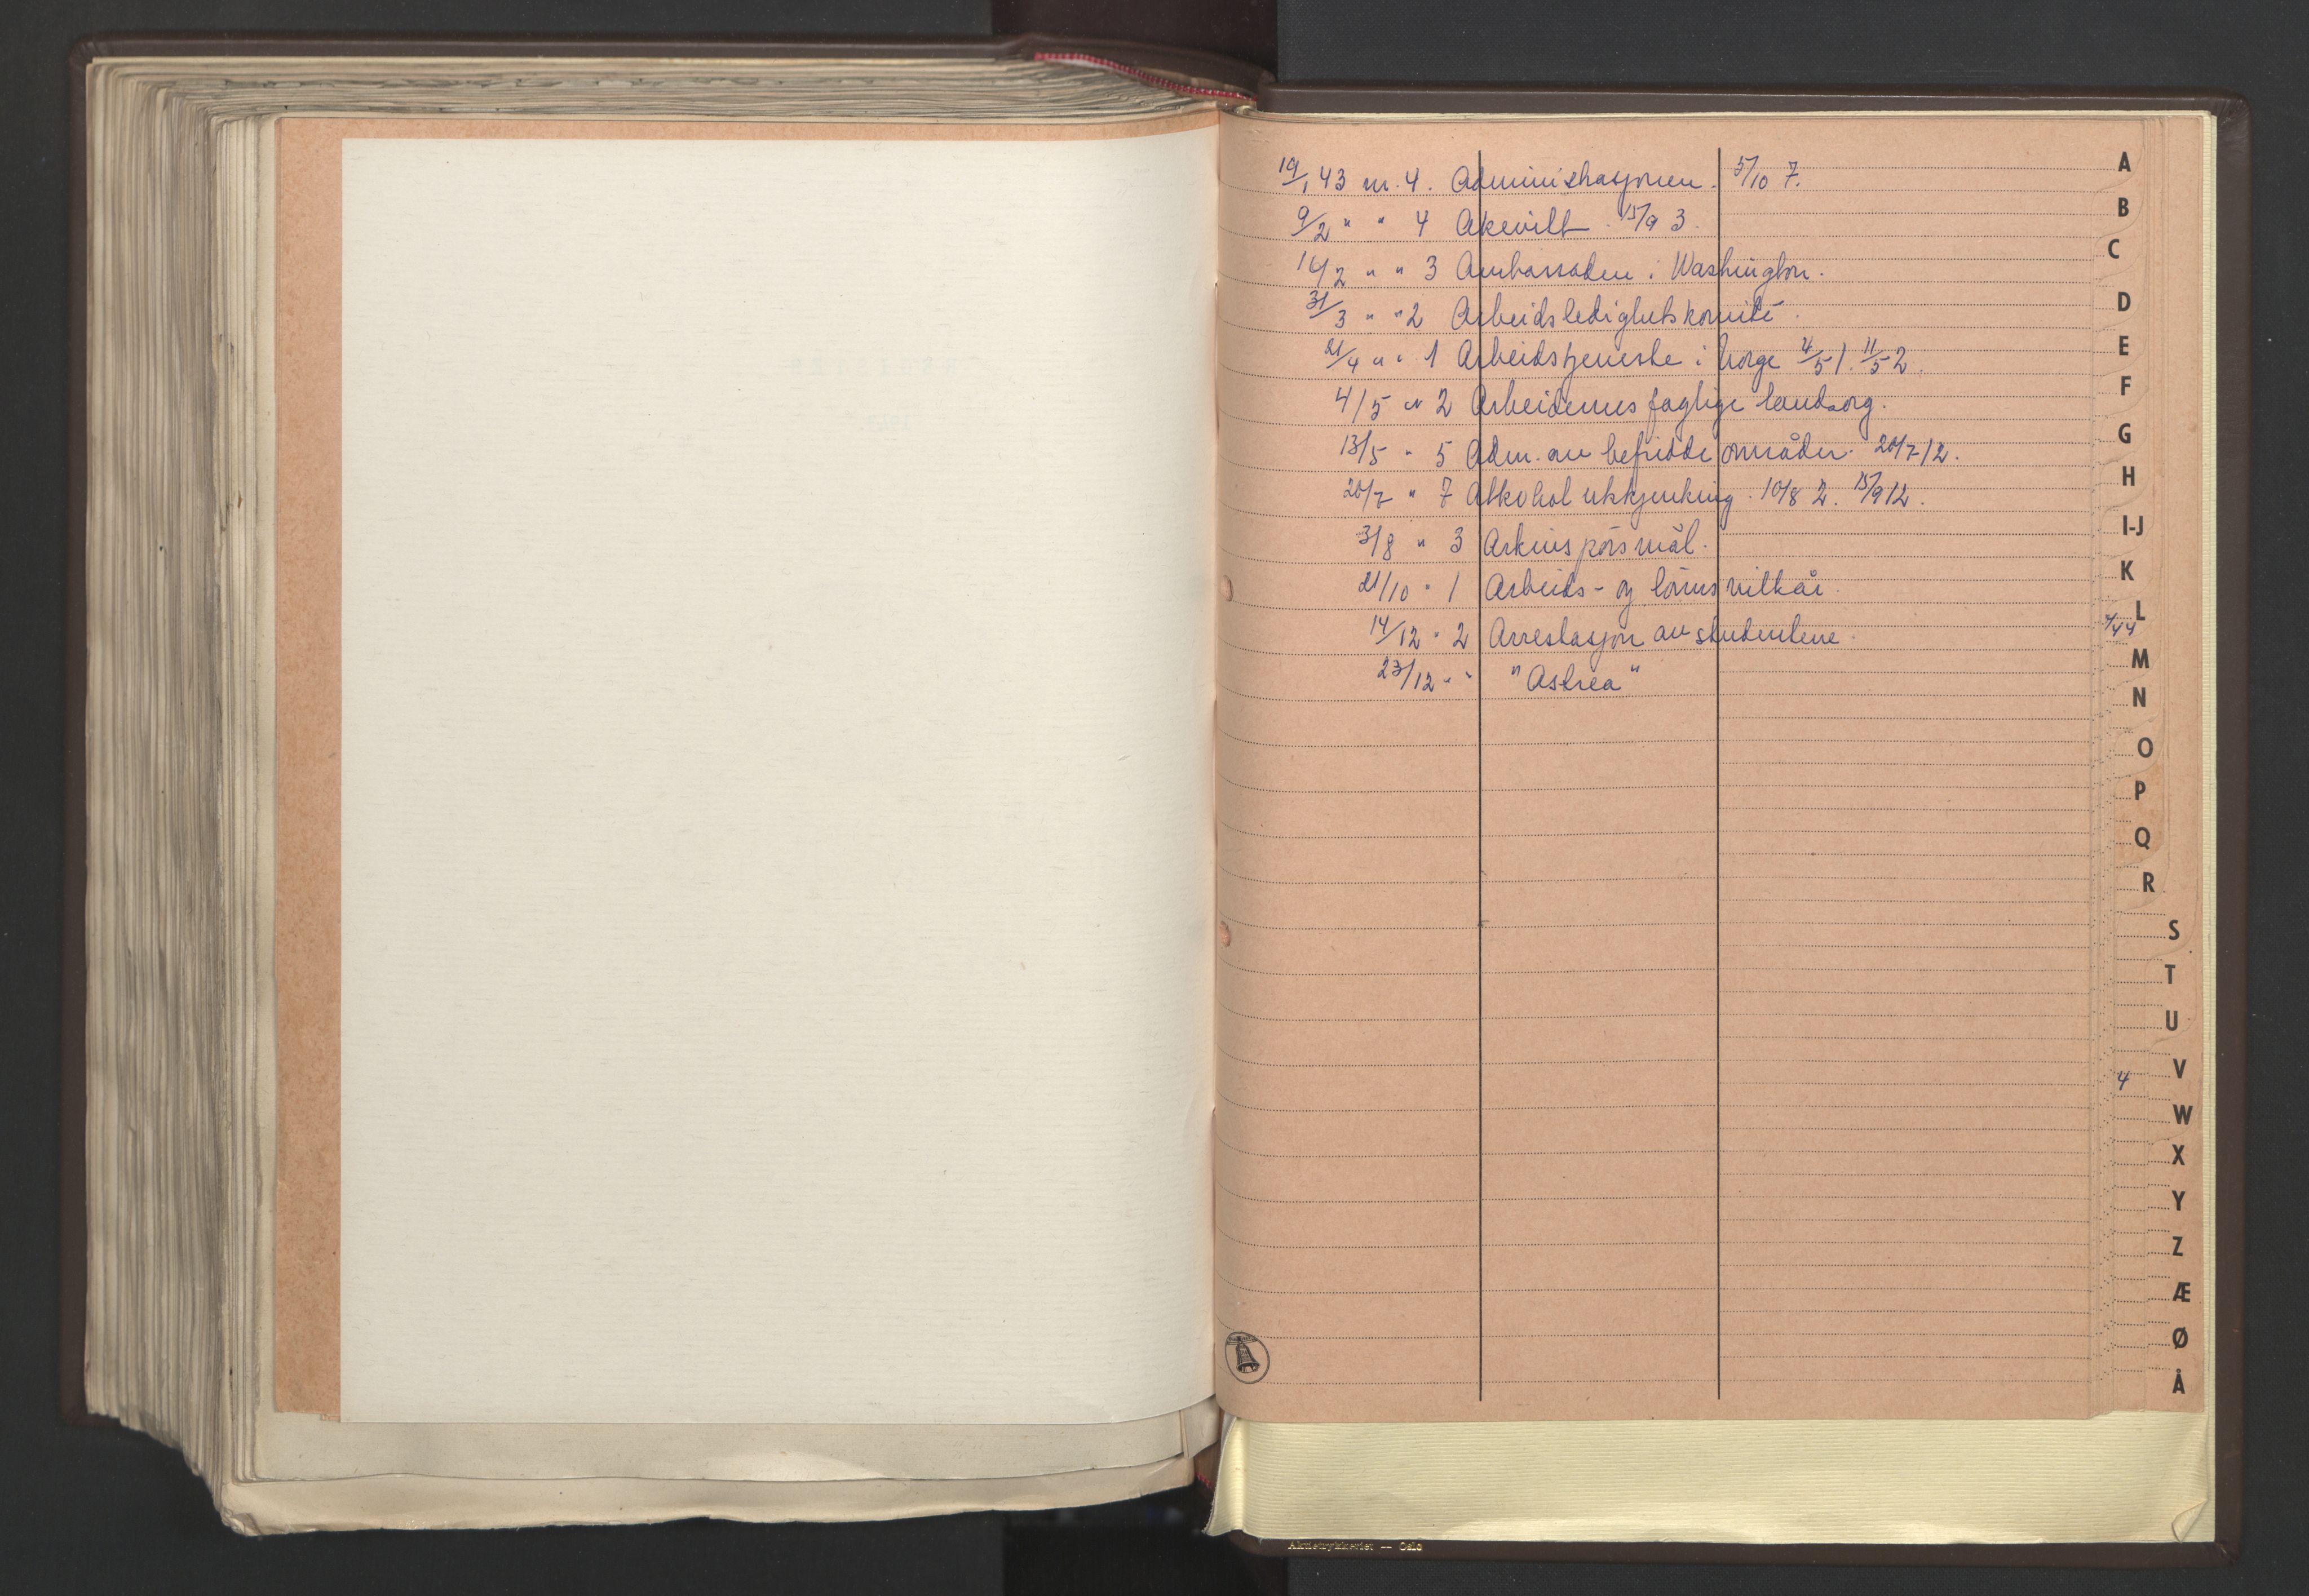 19/1 43 nr. 4. Administrasjonen. 5/10 7.
9/2 " " 4 Akevitt. 15/9 3.
16/2 " " 3 Ambassaden i Washington.
31/3 " " 2 Arbeidsledighetskomité.
21/4 " " 1 Arbeidstjeneste i Norge 4/5 1. 11/5 2.
4/5 " 2 Arbeidernes faglige landsorg.
13/5 " 5 Adm. av befridde områder. 20/7 12.
20/7 " 7 Alkohol utskjenking. 10/8 2. 15/9 12.
3/8 " 3 Arkivspörsmål.
21/10 " 1 Arbeids- og lönnsvilkår.
14/12 " 2 Arrestasjon av studentene.
23/12 " " "Astrea"
A
B
C
D
E
F
G
H
I-J
K
L
M
N
O
P
Q
R
S
T
U
V
4
W
X
Y
Z
Æ
Ø
Å
Aktietrykkeriet -- Oslo